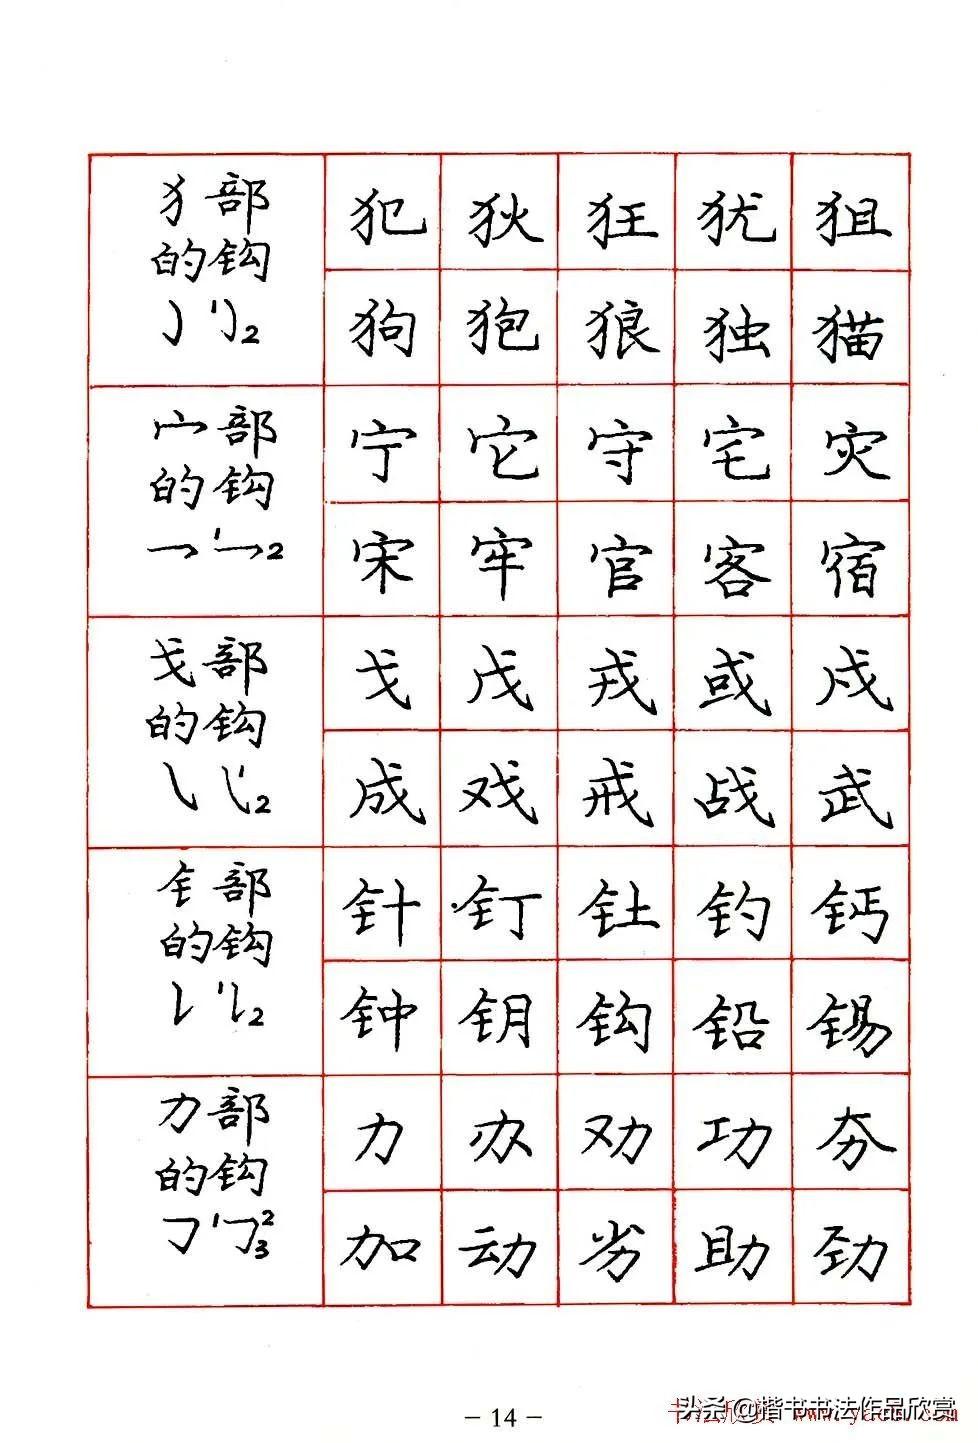 犭部
的钩
犯狄狂犹狙
狗狍狼独猫
宀部
的钩
宁它守宅灾
宋牢官客宿
戈部
的钩
戈戊戎或戍
成戏戒战武
钅部
的钩
针钉钍钓钙
钟钥钩铅锡
力部
的钩
力办劝功夯
加动劣助劲
- 14 -
头条@楷书书法作品欣赏